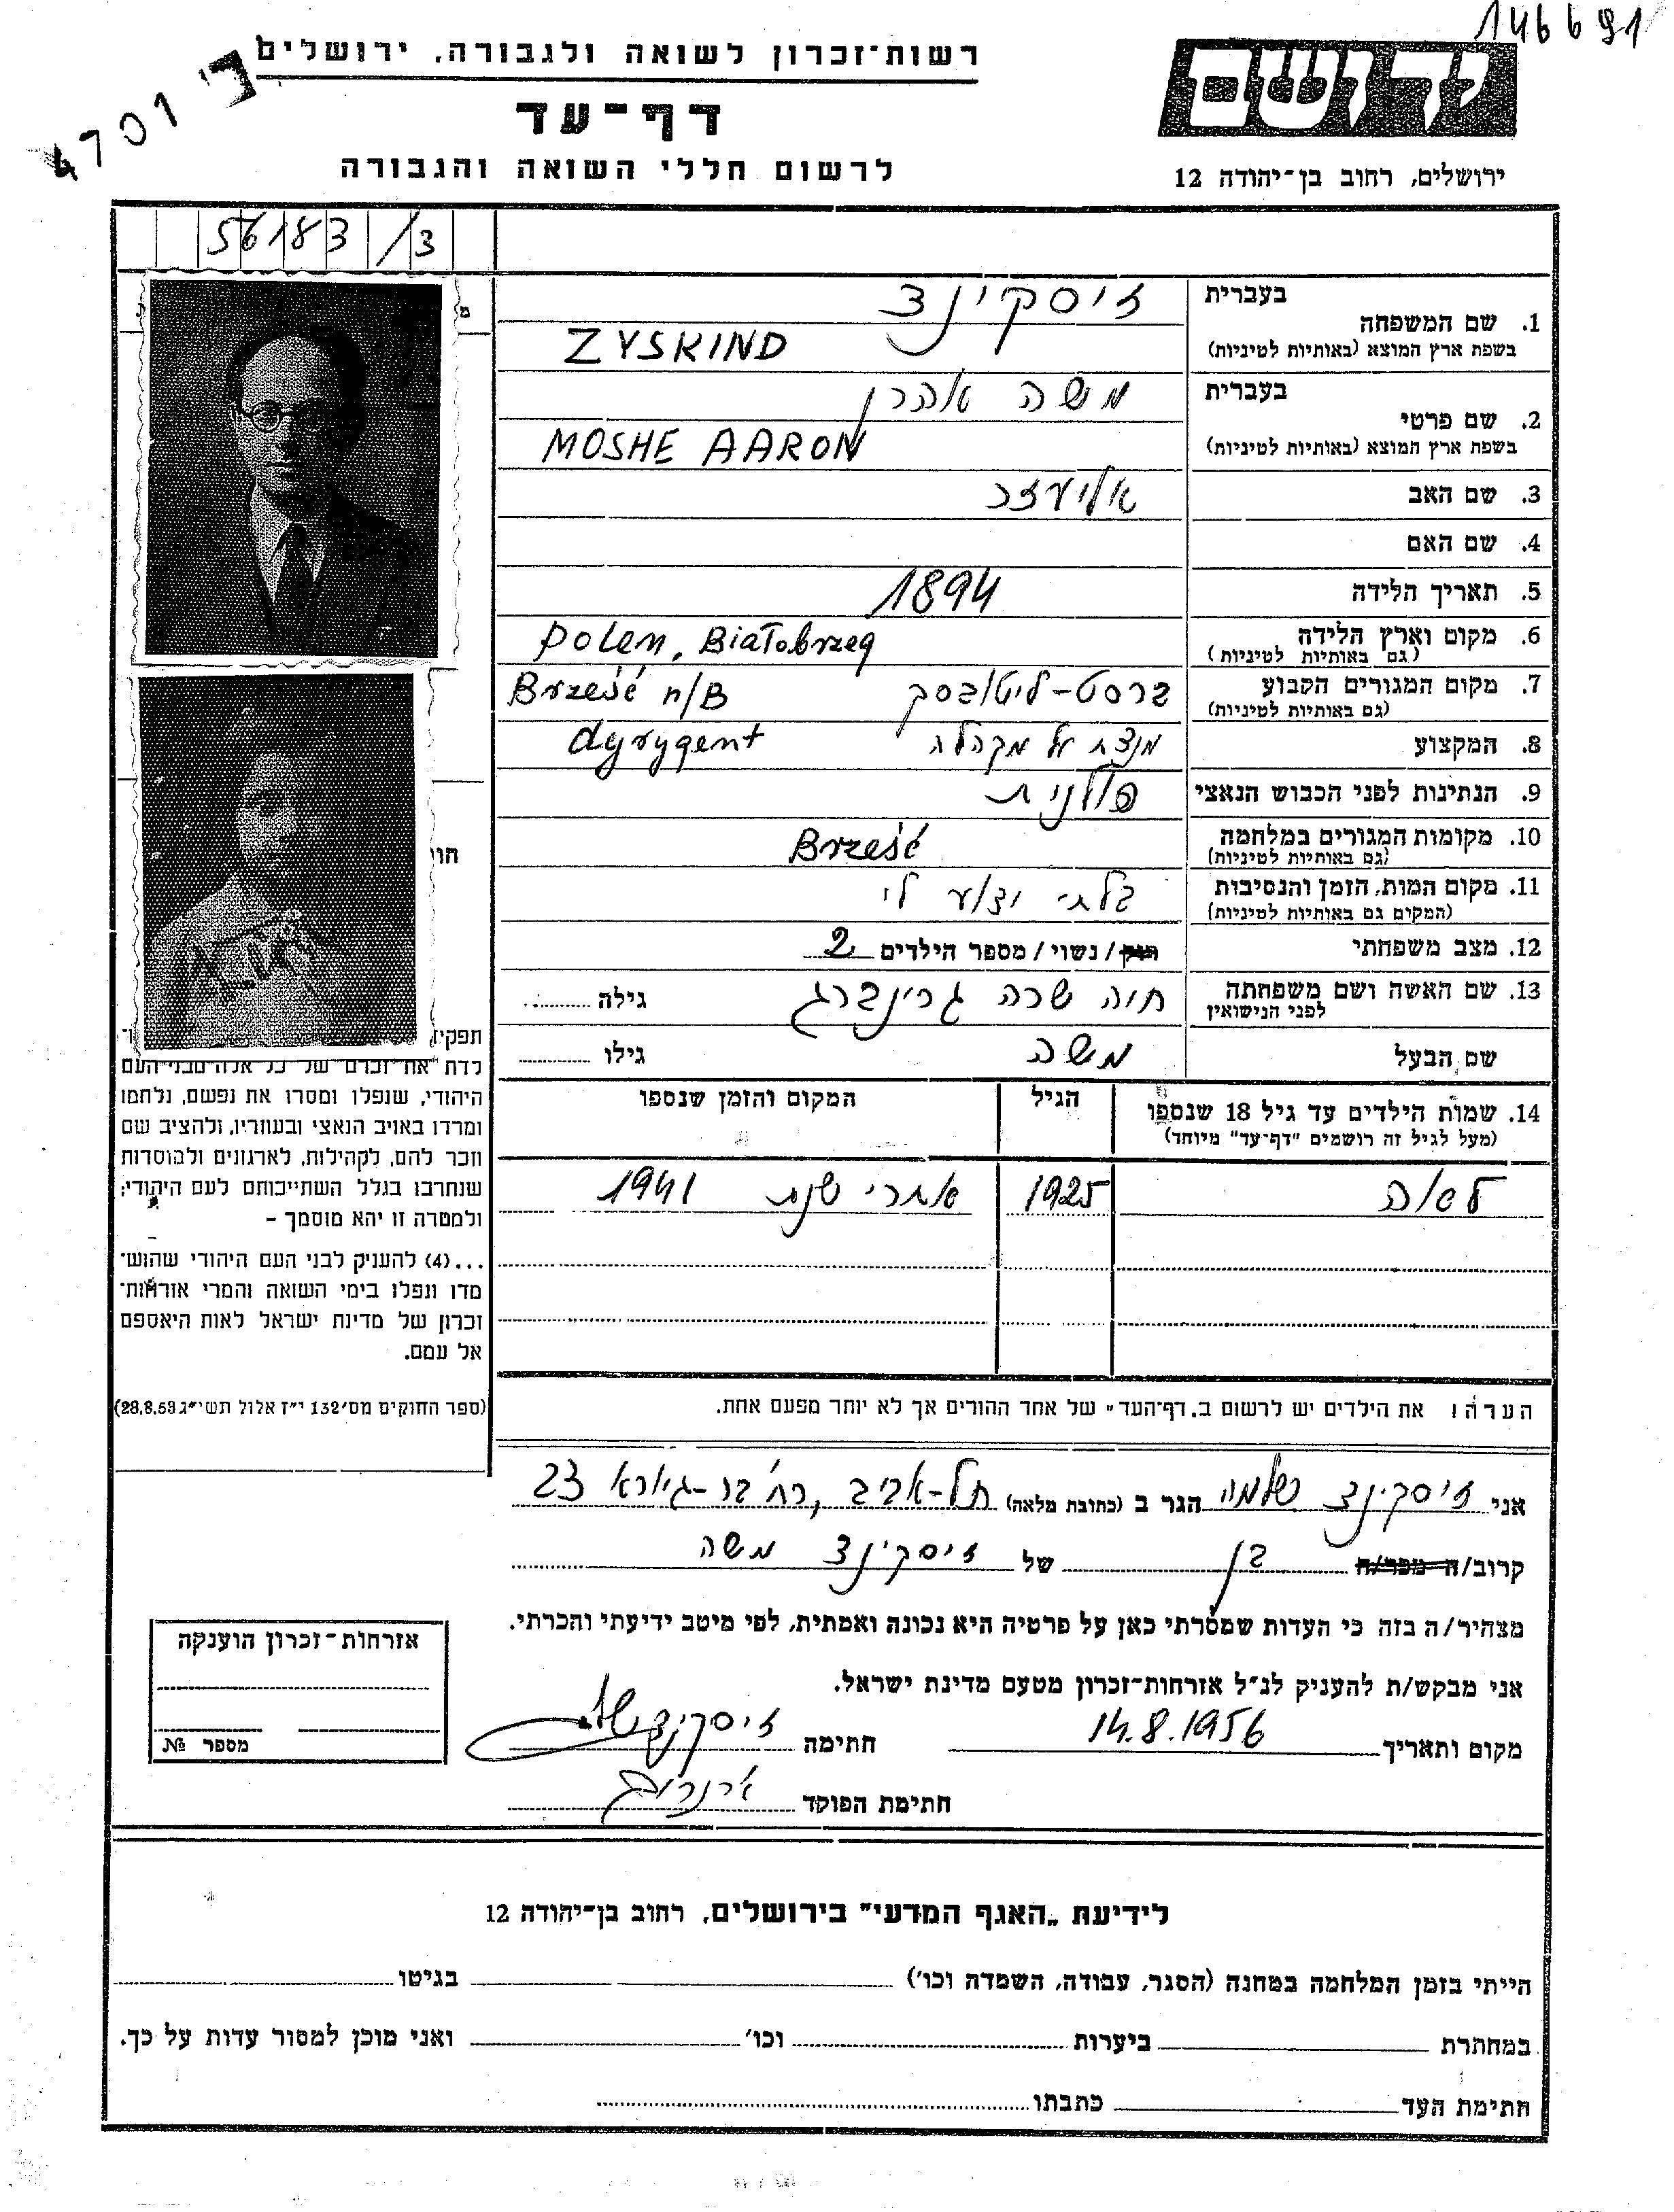 146691
רשות־זכרון לשואה ולגבורה, ירושלים
4701
דף־עד
לרשום חללי השואה והגבורה
יד ושם
ירושלים, רחוב בן־יהודה 12
56183/3
בעברית
1. שם המשפחה
בשפת ארץ המוצא (באותיות לטיניות)
זיסקינד
ZYSKIND
בעברית
2. שם פרטי
בשפת ארץ המוצא (באותיות לטיניות)
משה אהרן
MOSHE AARON
3. שם האב אליעזר
4. שם האם
5. תאריך הלידה 1894
6. מקום וארץ הלידה Polen, Białobrzeg
(גם באותיות לטיניות)
7. מקום המגורים הקבוע ברסט-ליטובסק Brześć n/B
(גם באותיות לטיניות)
8. המקצוע מנצח על מקהלה dyrygent
9. הנתינות לפני הכבוש הנאצי פולנית
10. מקומות המגורים במלחמה Brześć
(גם באותיות לטיניות)
11. מקום המות, הזמן והנסיבות בלתי ידוע לי
(המקום גם באותיות לטיניות)
12. מצב משפחתי רווק/נשוי/מספר הילדים 2
13. שם האשה ושם משפחתה חוה שרה גרינברג גילה
לפני הנישואין
שם הבעל משה גילו
14. שמות הילדים עד גיל 18 שנספו הגיל המקום והזמן שנספו
(מעל לגיל זה רושמים "דף־עד" מיוחד)
לאה 1925 אחרי שנת 1941
הערה: את הילדים יש לרשום ב„דף־העד" של אחד ההורים אך לא יותר מפעם אחת.
חוי
תפקידו
לדת את זכרם של כל אלה מבני העם
היהודי, שנפלו ומסרו את נפשם, נלחמו
ומרדו באויב הנאצי ובעוזריו, ולהציב שם
וזכר להם, לקהילות, לארגונים ולמוסדות
שנחרבו בגלל השתייכותם לעם היהודי;
ולמטרה זו יהא מוסמך –
...(4) להעניק לבני העם היהודי שהוש־
מדו ונפלו בימי השואה והמרי אזרחות־
זכרון של מדינת ישראל לאות היאספם
אל עמם.
(ספר החוקים מס׳ 132 י״ז אלול תשי״ג 28.8.53)
אני זיסקינד שלמה הגר ב (כתובת מלאה) תל-אביב, רח׳ בר-גיורא 23
קרוב/ה מכר/ה בן של זיסקינד משה
מצהיר/ה בזה כי העדות שמסרתי כאן על פרטיה היא נכונה ואמתית, לפי מיטב ידיעתי והכרתי.
אני מבקש/ת להעניק לנ״ל אזרחות־זכרון מטעם מדינת ישראל.
מקום ותאריך 14.8.1956 חתימה זיסקינד של
חתימת הפוקד
אזרחות־זכרון הוענקה
מספר №
לידיעת „האגף המדעי" בירושלים, רחוב בן־יהודה 12
הייתי בזמן המלחמה במחנה (הסגר, עבודה, השמדה וכו׳) בגיטו
במחתרת ביערות וכו׳ ואני מוכן למסור עדות על כך.
חתימת העד כתבתו